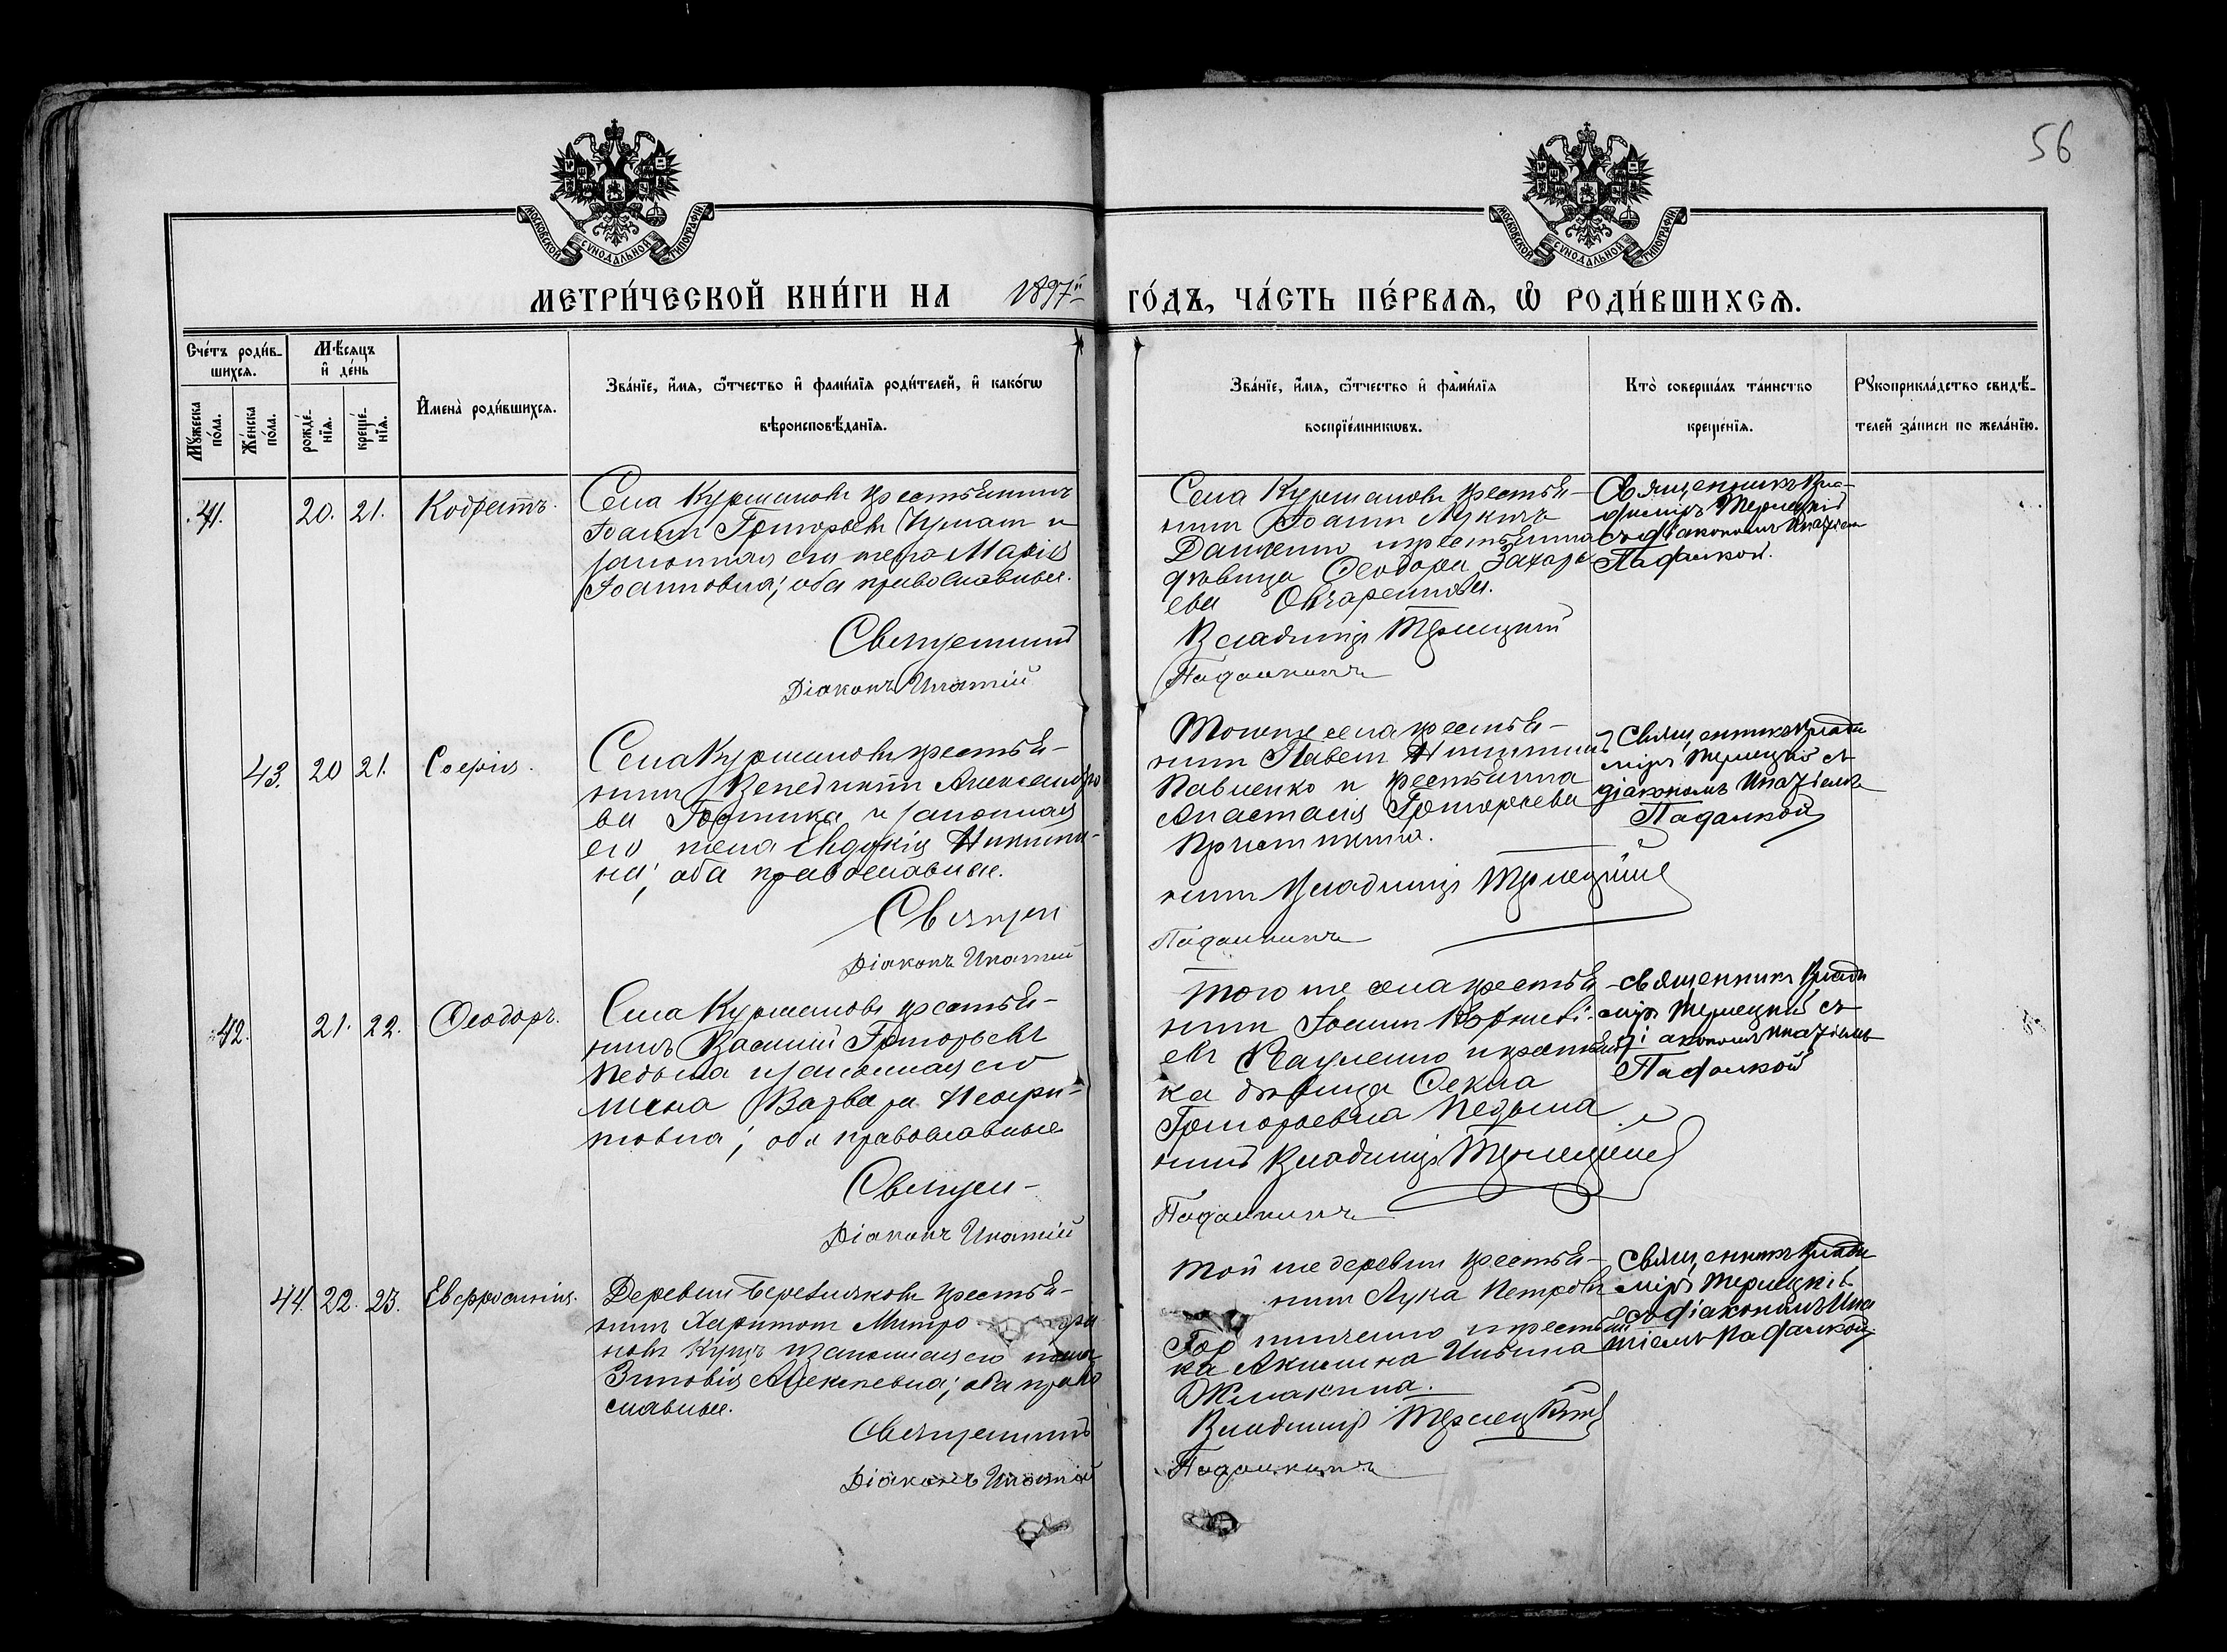 56
МОСКОВСКОЙ СѴНОДАЛЬНОЙ ТИПОГРАФІИ
МОСКОВСКОЙ СѴНОДАЛЬНОЙ ТИПОГРАФІИ
МЕТРИ́ЧЕСКОЙ КНИ́ГИ НА 1897й ГО́ДЪ, ЧА́СТЬ ПЕ́РВАѦ, Ѿ РОДИ́ВШИХСѦ.
Сче́тъ роди́в-
шихсѧ.
Мꙋ́жеска
по́ла.
Же́нска
по́ла.
Мѣ́сѧцъ
и҆ де́нь
рожде́-
нїѧ.
креще́-
нїѧ.
И҆мена̀ роди́вшихсѧ.
Зва́нїе, и҆́мѧ, ѻ҆́тчество и҆ фами́лїѧ роди́телей, и҆ како́гѡ
вѣроисповѣ́данїѧ.
Зва́нїе, и҆́мѧ, ѻ҆́тчество и҆ фами́лїѧ
воспрїе́мникѡвъ.
Кто̀ соверша́лъ та́инство
креще́нїѧ.
Рꙋкоприкла́дство свидѣ́-
телей за́писи по жела́нїю.
41.
20. 21.
Кодратъ.
Села Курмановъ крестьянинъ
Іоаннъ Григорьевъ и
законная его жена Марія
Іоанновна; оба православные.
Священникъ
Діаконъ Ипатій
Села Курмановъ крестья-
нинъ Іоаннъ Лукичъ
Даценко и крестьянка
дѣвица Ѳеодора Захарь-
ева Овчаренкова.
Владиміръ Терлецкій
Падалкинъ
Священникъ Вла-
диміръ Терлецкій
съ діакономъ Ипатіемъ
Падалкой.
43.
20 21.
Софія.
Села Курмановъ крестья-
нинъ Венедиктъ Александро-
въ и законная
его жена Евдокія Никити-
на; оба православные.
Священ
Діаконъ Ипатій
Того же села крестья-
нинъ Павелъ Никитинъ
Павленко и крестьянка
Анастасія Григорьева
никъ Владиміръ Терлецкій
Падалкинъ
Священникъ Влади
міръ Терлецкій съ
діакономъ Ипатіемъ
Падалкой
42.
21. 22.
Ѳеодоръ.
Села Курмановъ крестья-
нинъ Василій Григорьевъ
Педьма и законная его
жена Варвара
; оба православные
Священ-
Діаконъ Ипатій
Того же села крестья
нинъ Іоаннъ Корниліь-
евъ и крестьян
ка дѣвица Ѳекла
Григорьевна Педьма
никъ Владиміръ Терлецкій
Падалкинъ
Священникъ Влади
міръ Терлецкій съ
діакономъ Ипатіемъ
Падалкой
44.
22. 23.
Евфросинія.
Деревни Березняковъ крестья-
нинъ Харитонъ Митро
новъ Куцъ и законная его жена
Зиновія Алексѣевна; оба право
славные.
Священникъ
Діаконъ Ипатій
Той же деревни крестья-
нинъ Лука Петровъ
и крестьян
ка Акилина Ильина
Жмакина.
Владиміръ Терлецкій
Падалкинъ
Священникъ Влади
міръ Терлецкій
съ діакономъ Ипа
тіемъ Падалкой.